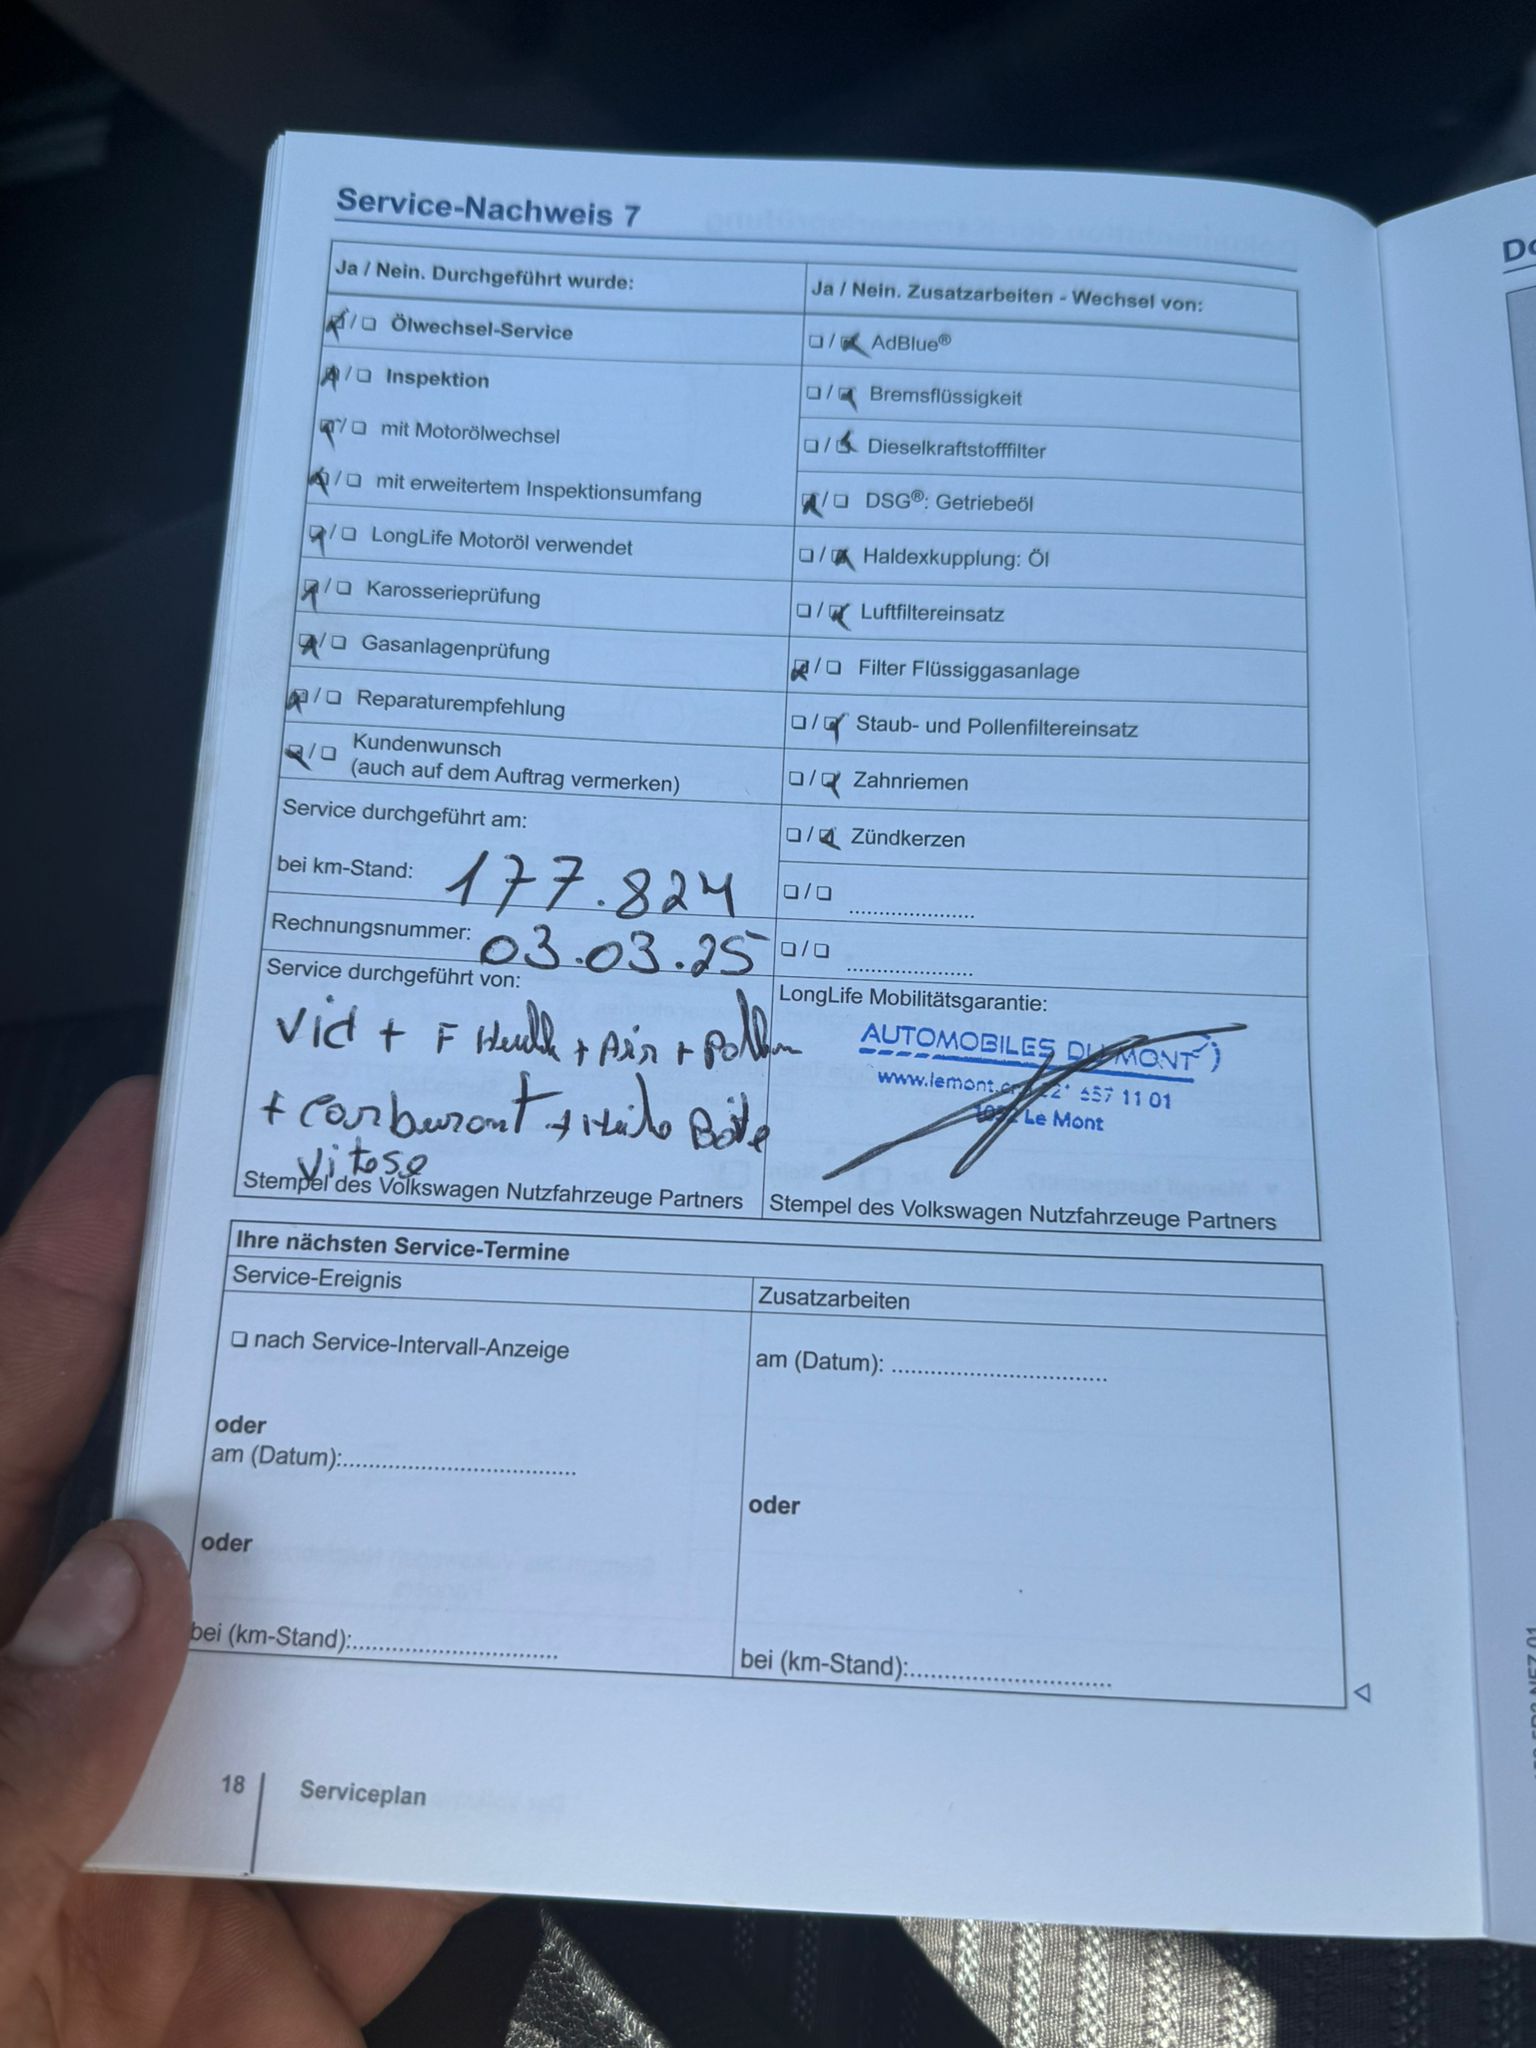 Service-Nachweis 7
Ja / Nein. Durchgeführt wurde:
❏ / ❏ Ölwechsel-Service
❏ / ❏ Inspektion
❏ / ❏ mit Motorölwechsel
❏ / ❏ mit erweitertem Inspektionsumfang
❏ / ❏ LongLife Motoröl verwendet
❏ / ❏ Karosserieprüfung
❏ / ❏ Gasanlagenprüfung
❏ / ❏ Reparaturempfehlung
❏ / ❏ Kundenwunsch
(auch auf dem Auftrag vermerken)
Service durchgeführt am:
bei km-Stand: 177.824
Rechnungsnummer: 03.03.25
Service durchgeführt von:
Vid + F + Air + Pollen
+ Carburant + Boîte
Vitese
Stempel des Volkswagen Nutzfahrzeuge Partners
Ja / Nein. Zusatzarbeiten - Wechsel von:
❏ / ❏ AdBlue®
❏ / ❏ Bremsflüssigkeit
❏ / ❏ Dieselkraftstofffilter
❏ / ❏ DSG®: Getriebeöl
❏ / ❏ Haldexkupplung: Öl
❏ / ❏ Luftfiltereinsatz
❏ / ❏ Filter Flüssiggasanlage
❏ / ❏ Staub- und Pollenfiltereinsatz
❏ / ❏ Zahnriemen
❏ / ❏ Zündkerzen
❏ / ❏ ......................
❏ / ❏ ......................
LongLife Mobilitätsgarantie:
AUTOMOBILES DU MONT
www.lemont. 657 11 01
Le Mont
Stempel des Volkswagen Nutzfahrzeuge Partners
Ihre nächsten Service-Termine
Service-Ereignis
❏ nach Service-Intervall-Anzeige
oder
am (Datum):....................................
oder
bei (km-Stand):................................
Zusatzarbeiten
am (Datum): .................................
oder
bei (km-Stand):...............................
18
Serviceplan